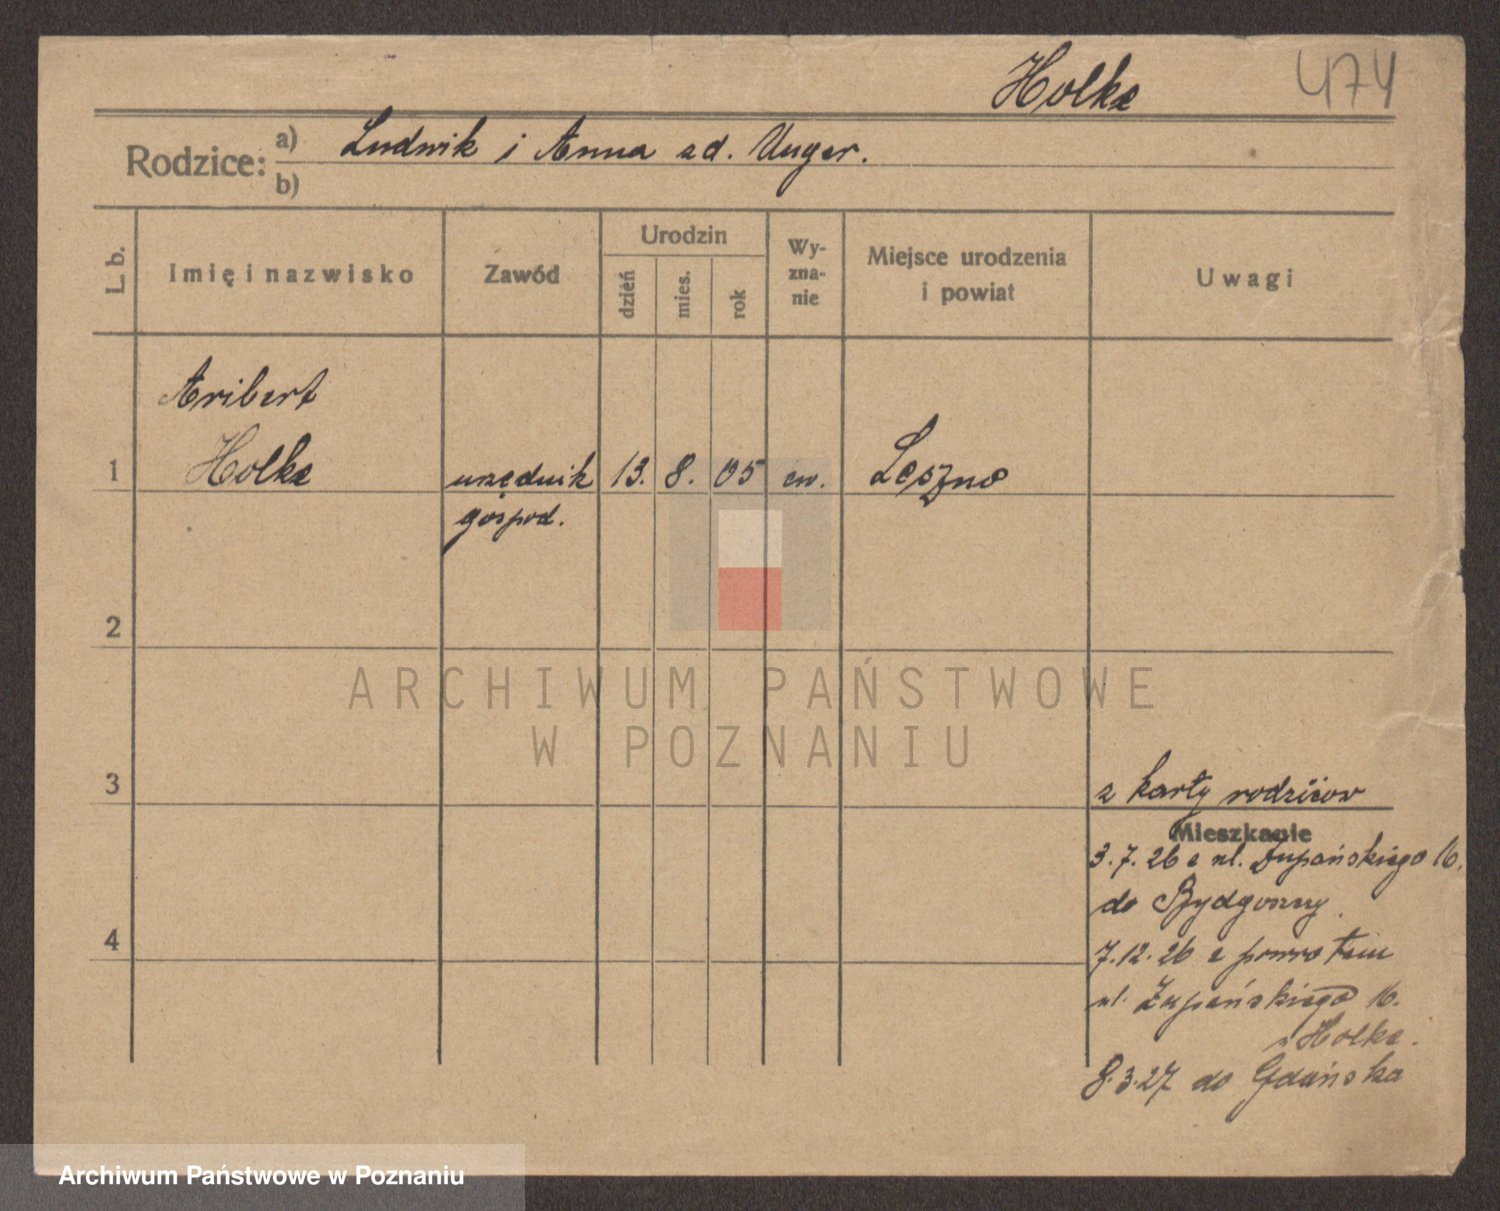 Holke 474
Rodzice: a) Ludwik i Anna zd. Unger.
b)
L. b.
Imię i nazwisko
Zawód
Urodzin
dzień
mies.
rok
Wy-
zna-
nie
Miejsce urodzenia
i powiat
Uwagi
Aribert
1 Holke urzędnik 13. 8. 05 ew. Leszno
gospod.
2
ARCHIWUM PAŃSTWOWE
W POZNANIU
3 z karty rodziców
Mieszkanie
3.7.26 z ul. Żupańskiego 16.
do Bydgoszczy
4
7.12.26 z powrotem
ul. Żupańskiego 16.
u Holke.
8.3.27 do Gdańska
Archiwum Państwowe w Poznaniu